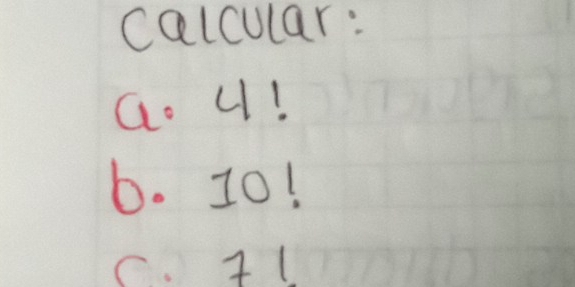 Calcular:
a. 4!
b. 10!
c. 7!